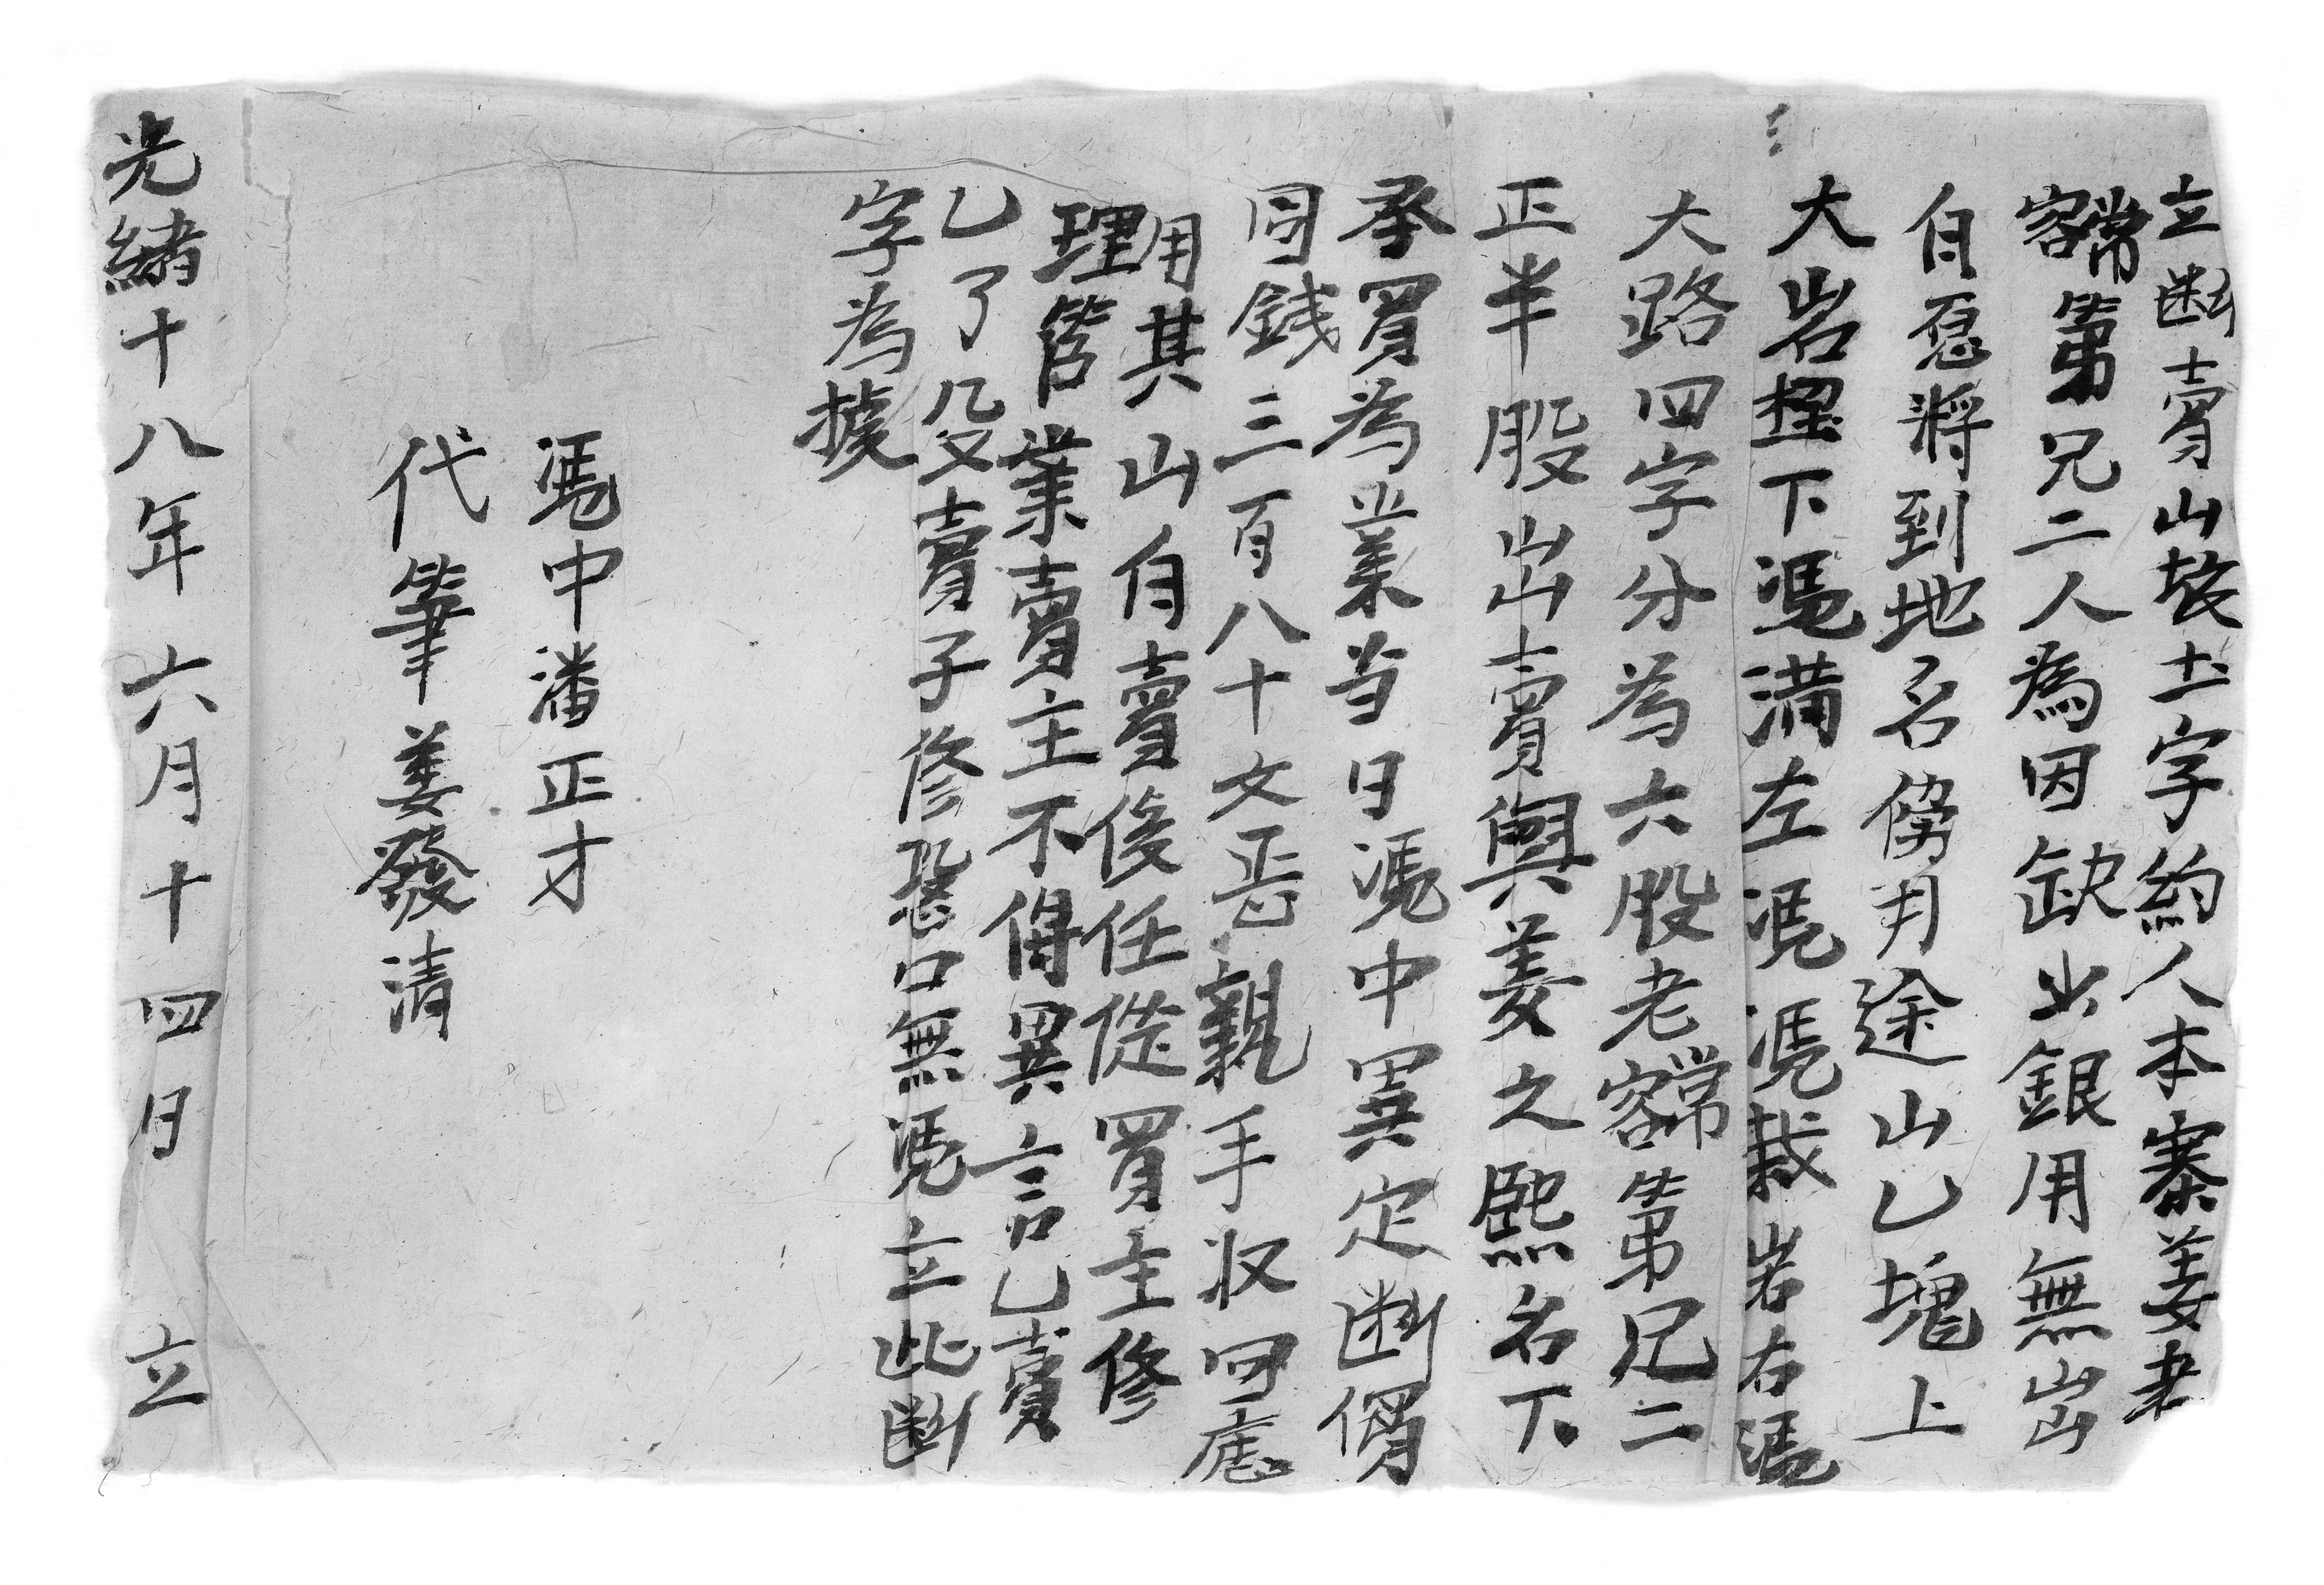 立断賣山塲土字約人本寨姜老
容常第兄二人為因缺出銀用無出
自愿將到地名傍月途山乚塊上
大岩塆下馮溝左馮馮栽岩右馮
大路四字分為六股老容常第兄二
正半股出賣與姜之熙名下
承買為業当日馮中異定断價
同錢三百八十文正親手収回應
用其山自賣後任從買主修
理管業賣主不得異言乚賣
乚了父賣子修恐口無馮立此断
字為據
馮中潘正才
代筆姜發清
光緒十八年六月十四日 立